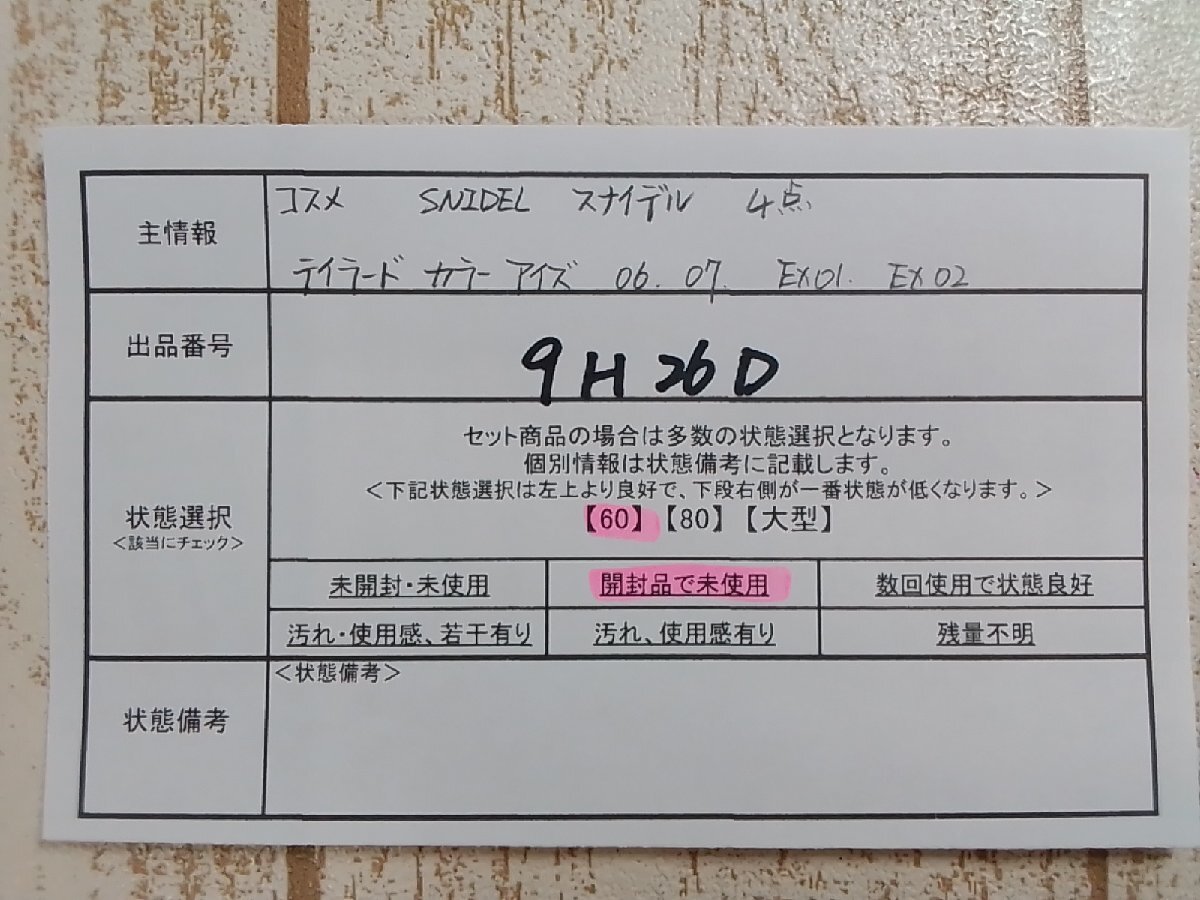 主情報
コスメ SNIDEL スナイデル 4点
テイラード カラー アイズ 06. 07. EX01. EX02
出品番号
9H26D
状態選択
<該当にチェック>
セット商品の場合は多数の状態選択となります。
個別情報は状態備考に記載します。
<下記状態選択は左上より良好で、下段右側が一番状態が低くなります。>
【60】【80】【大型】
未開封・未使用 開封品で未使用 数回使用で状態良好
汚れ・使用感、若干有り 汚れ、使用感有り 残量不明
状態備考
<状態備考>